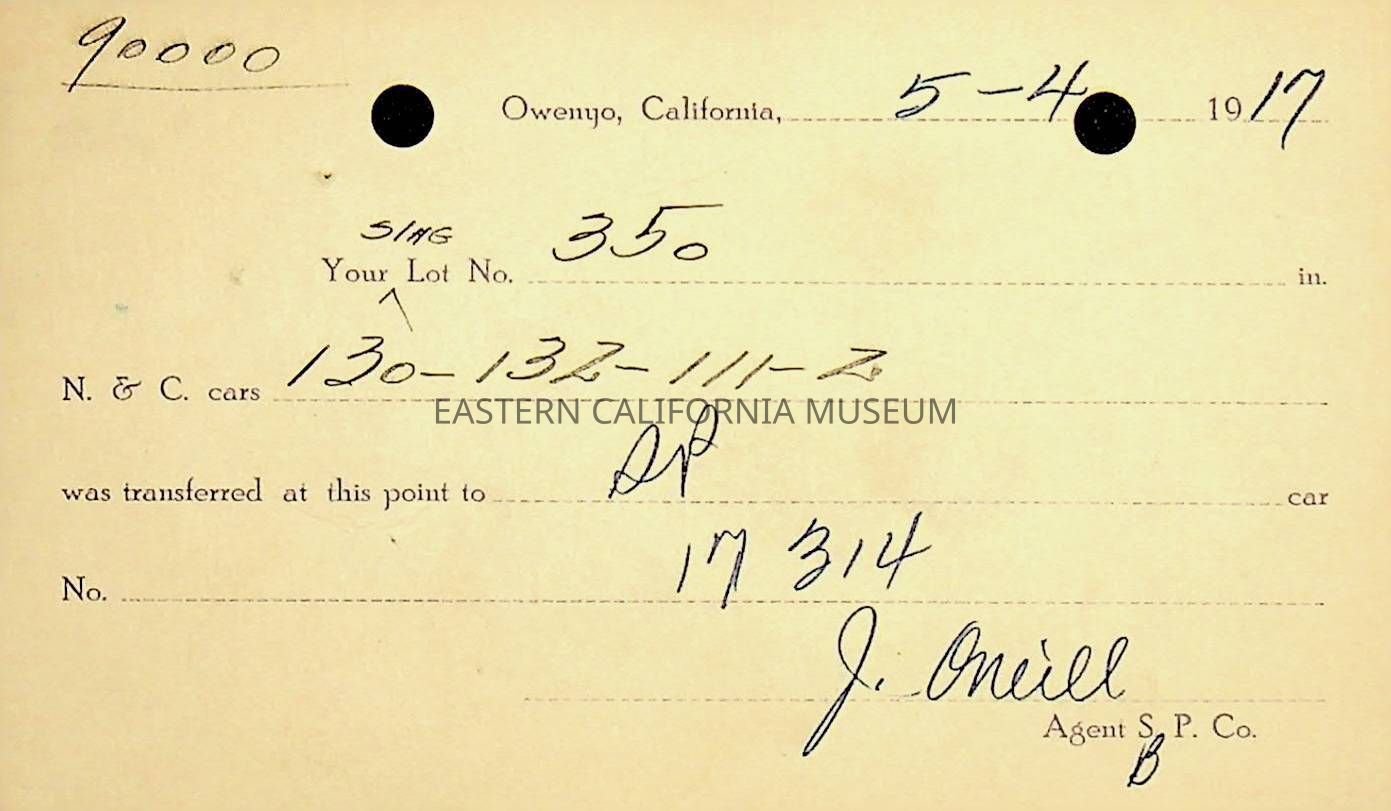 90000
Owenyo, California, 5-4 1917
SLAG
Your Lot No. 350 in.
N. & C. cars 130-132-111-2
EASTERN CALIFORNIA MUSEUM
was transferred at this point to SP car
No. 17 314
J. Oneill
Agent S. P. Co.
B